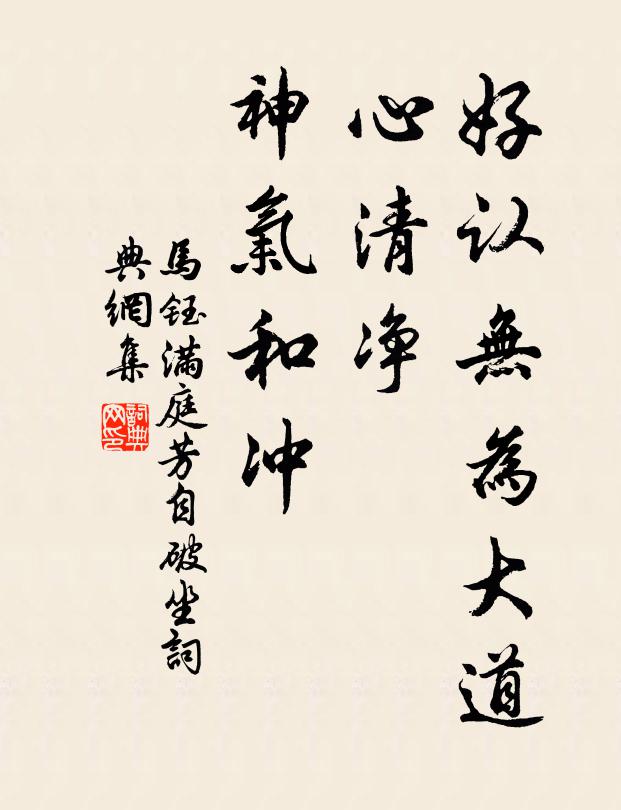 好认無為大道
心清净
神氣和冲
馬鈺满庭芳自破坐詞
典網集
詞典网印